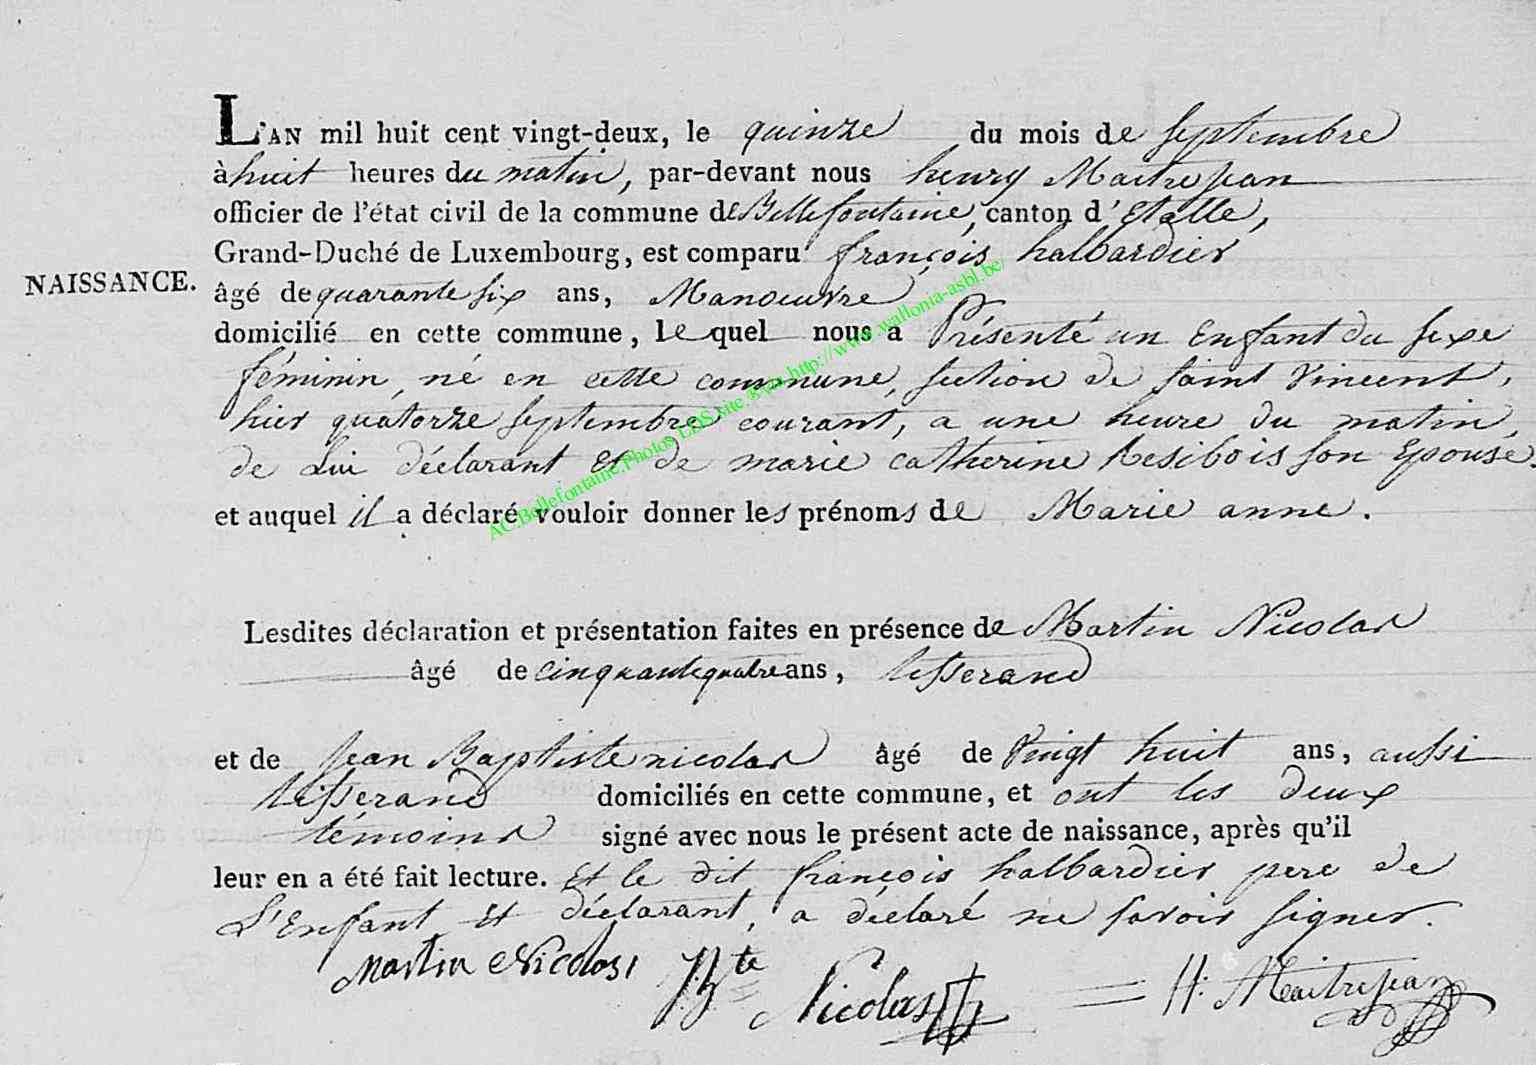 L'AN mil huit cent vingt-deux, le quinze du mois de septembre
à huit heures du matin, par-devant nous henry Maitrejean
officier de l'état civil de la commune de Bellefontaine, canton d'Etalle,
Grand-Duché de Luxembourg, est comparu françois halbardier
NAISSANCE.
âgé de quarante six ans, Manoeuvre
domicilié en cette commune, lequel nous a Présenté un Enfant du sexe
féminin, né en cette commune, section de saint Vincent,
hier quatorze septembre courant, a une heure du matin,
de Lui déclarant et de marie catherine Resibois son Epouse.
et auquel il a déclaré vouloir donner les prénoms de Marie anne.
Lesdites déclaration et présentation faites en présence de Martin Nicolas
âgé de cinquante quatre ans, tisserand
et de Jean Baptiste nicolas âgé de Vingt huit ans, aussi
tisserand domiciliés en cette commune, et ont les deux
témoins signé avec nous le présent acte de naissance, après qu'il
leur en a été fait lecture. Et le dit françois halbardier pere de
L'Enfant et déclarant, a déclaré ne savoir signer.
Martin Nicolas JBte Nicolas H: Maitrejean
AC.Bellefontaine.Photos LDS.site Kwa http://www.wallonia-asbl.be/